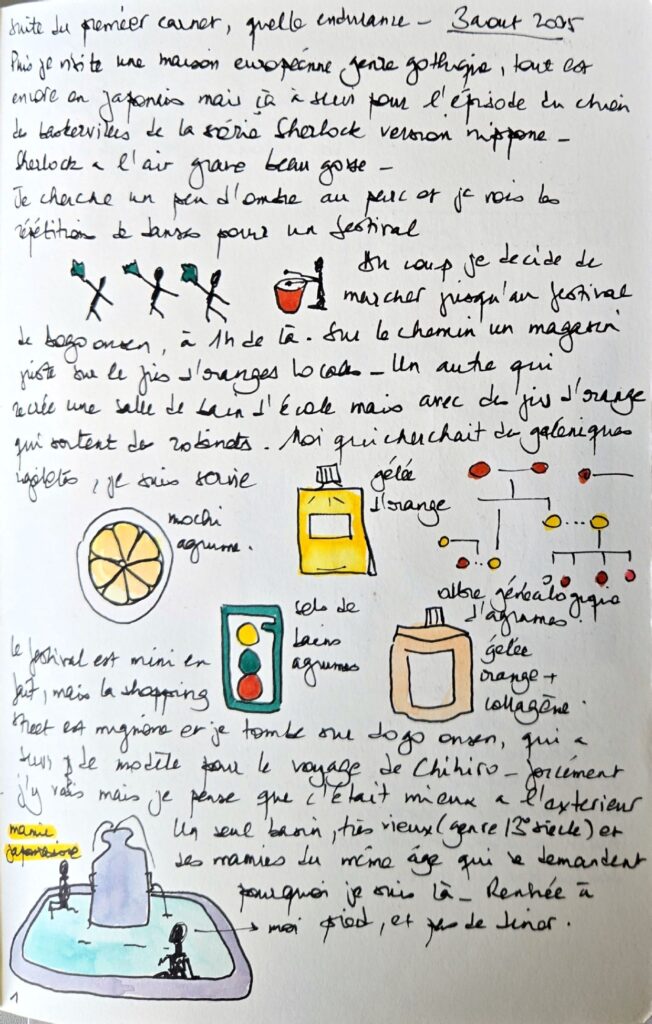 suite du premier carnet, quelle endurance – 3 aout 2005
Puis je visite une maison européenne genre gothique, tout est
encore en japonais mais ça a servi pour l'épisode du chien
de baskervilles de la série Sherlock version nippone –
Sherlock a l'air grave beau gosse –
Je cherche un peu d'ombre au parc et je vois les
répétitions de danses pour un festival
Du coup je decide de
marcher jusqu'au festival
de dogo onsen, à 1h de là. Sur le chemin un magasin
juste sur le jus d'oranges locales – Un autre qui
recrée une salle de bain d'école mais avec des jus d'orange
qui sortent des robinets. Moi qui cherchait des galeniques
rigolotes, je suis servie
mochi
agrume.
gélée
d'orange
arbre généalogique
d'agrumes.
sels de
bains
agrumes
gélée
orange +
collagène.
le festival est mini en
fait, mais la shopping
street est mignonne et je tombe sur dogo onsen, qui a
servi de modèle pour le voyage de Chihiro – forcément
j'y vais mais je pense que c'était mieux a l'exterieur
Un seul bassin, très vieux (genre siècle) et
des mamies du même âge qui se demandent
pourquoi je suis là – Rentrée à
pied, et pas de diner.
mamie
japonaise
→ moi
1